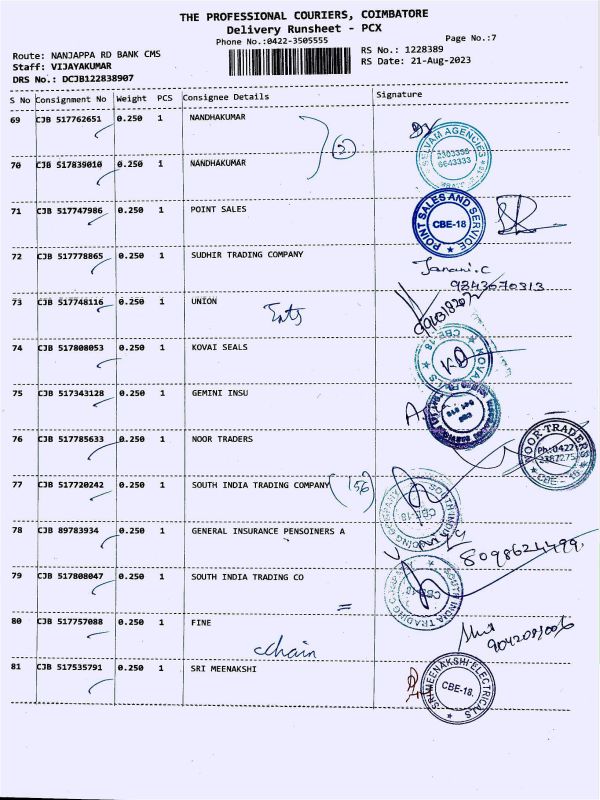 THE PROFESSIONAL COURIERS, COIMBATORE
Delivery Runsheet - PCX
Phone No.:0422-3505555
Page No.:7
Route: NANJAPPA RD BANK CMS
RS No.: 1228389
Staff: VIJAYAKUMAR
RS Date: 21-Aug-2023
DRS No.: DCJB122838907
S No Consignment No Weight PCS Consignee Details Signature
69 CJB 517762651 0.250 1 NANDHAKUMAR
2
SELVAM AGENCIES
70 CJB 517839010 0.250 1 NANDHAKUMAR
71 CJB 517747986 0.250 1 POINT SALES
POINT SALES AND SERVICE
CBE-18
72 CJB 517778865 0.250 1 SUDHIR TRADING COMPANY
Janani.C
9843670313
73 CJB 517748116 0.250 1 UNION
Ents
74 CJB 517808053 0.250 1 KOVAI SEALS
KOVAI S
CBE-18
75 CJB 517343128 0.250 1 GEMINI INSU
76 CJB 517785633 0.250 1 NOOR TRADERS
NOOR TRADERS
Ph:0422
CBE - 18
77 CJB 517720242 0.250 1 SOUTH INDIA TRADING COMPANY
SOUTH INDIA TRADING COMPANY
CBE-18
78 CJB 89783934 0.250 1 GENERAL INSURANCE PENSOINERS A
8098624499.
79 CJB 517808047 0.250 1 SOUTH INDIA TRADING CO
SOUTH INDIA TRADING COMPANY
CBE-18
80 CJB 517757088 0.250 1 FINE
chain
81 CJB 517535791 0.250 1 SRI MEENAKSHI
SRI MEENAKSHI ELECTRICALS
CBE-18.